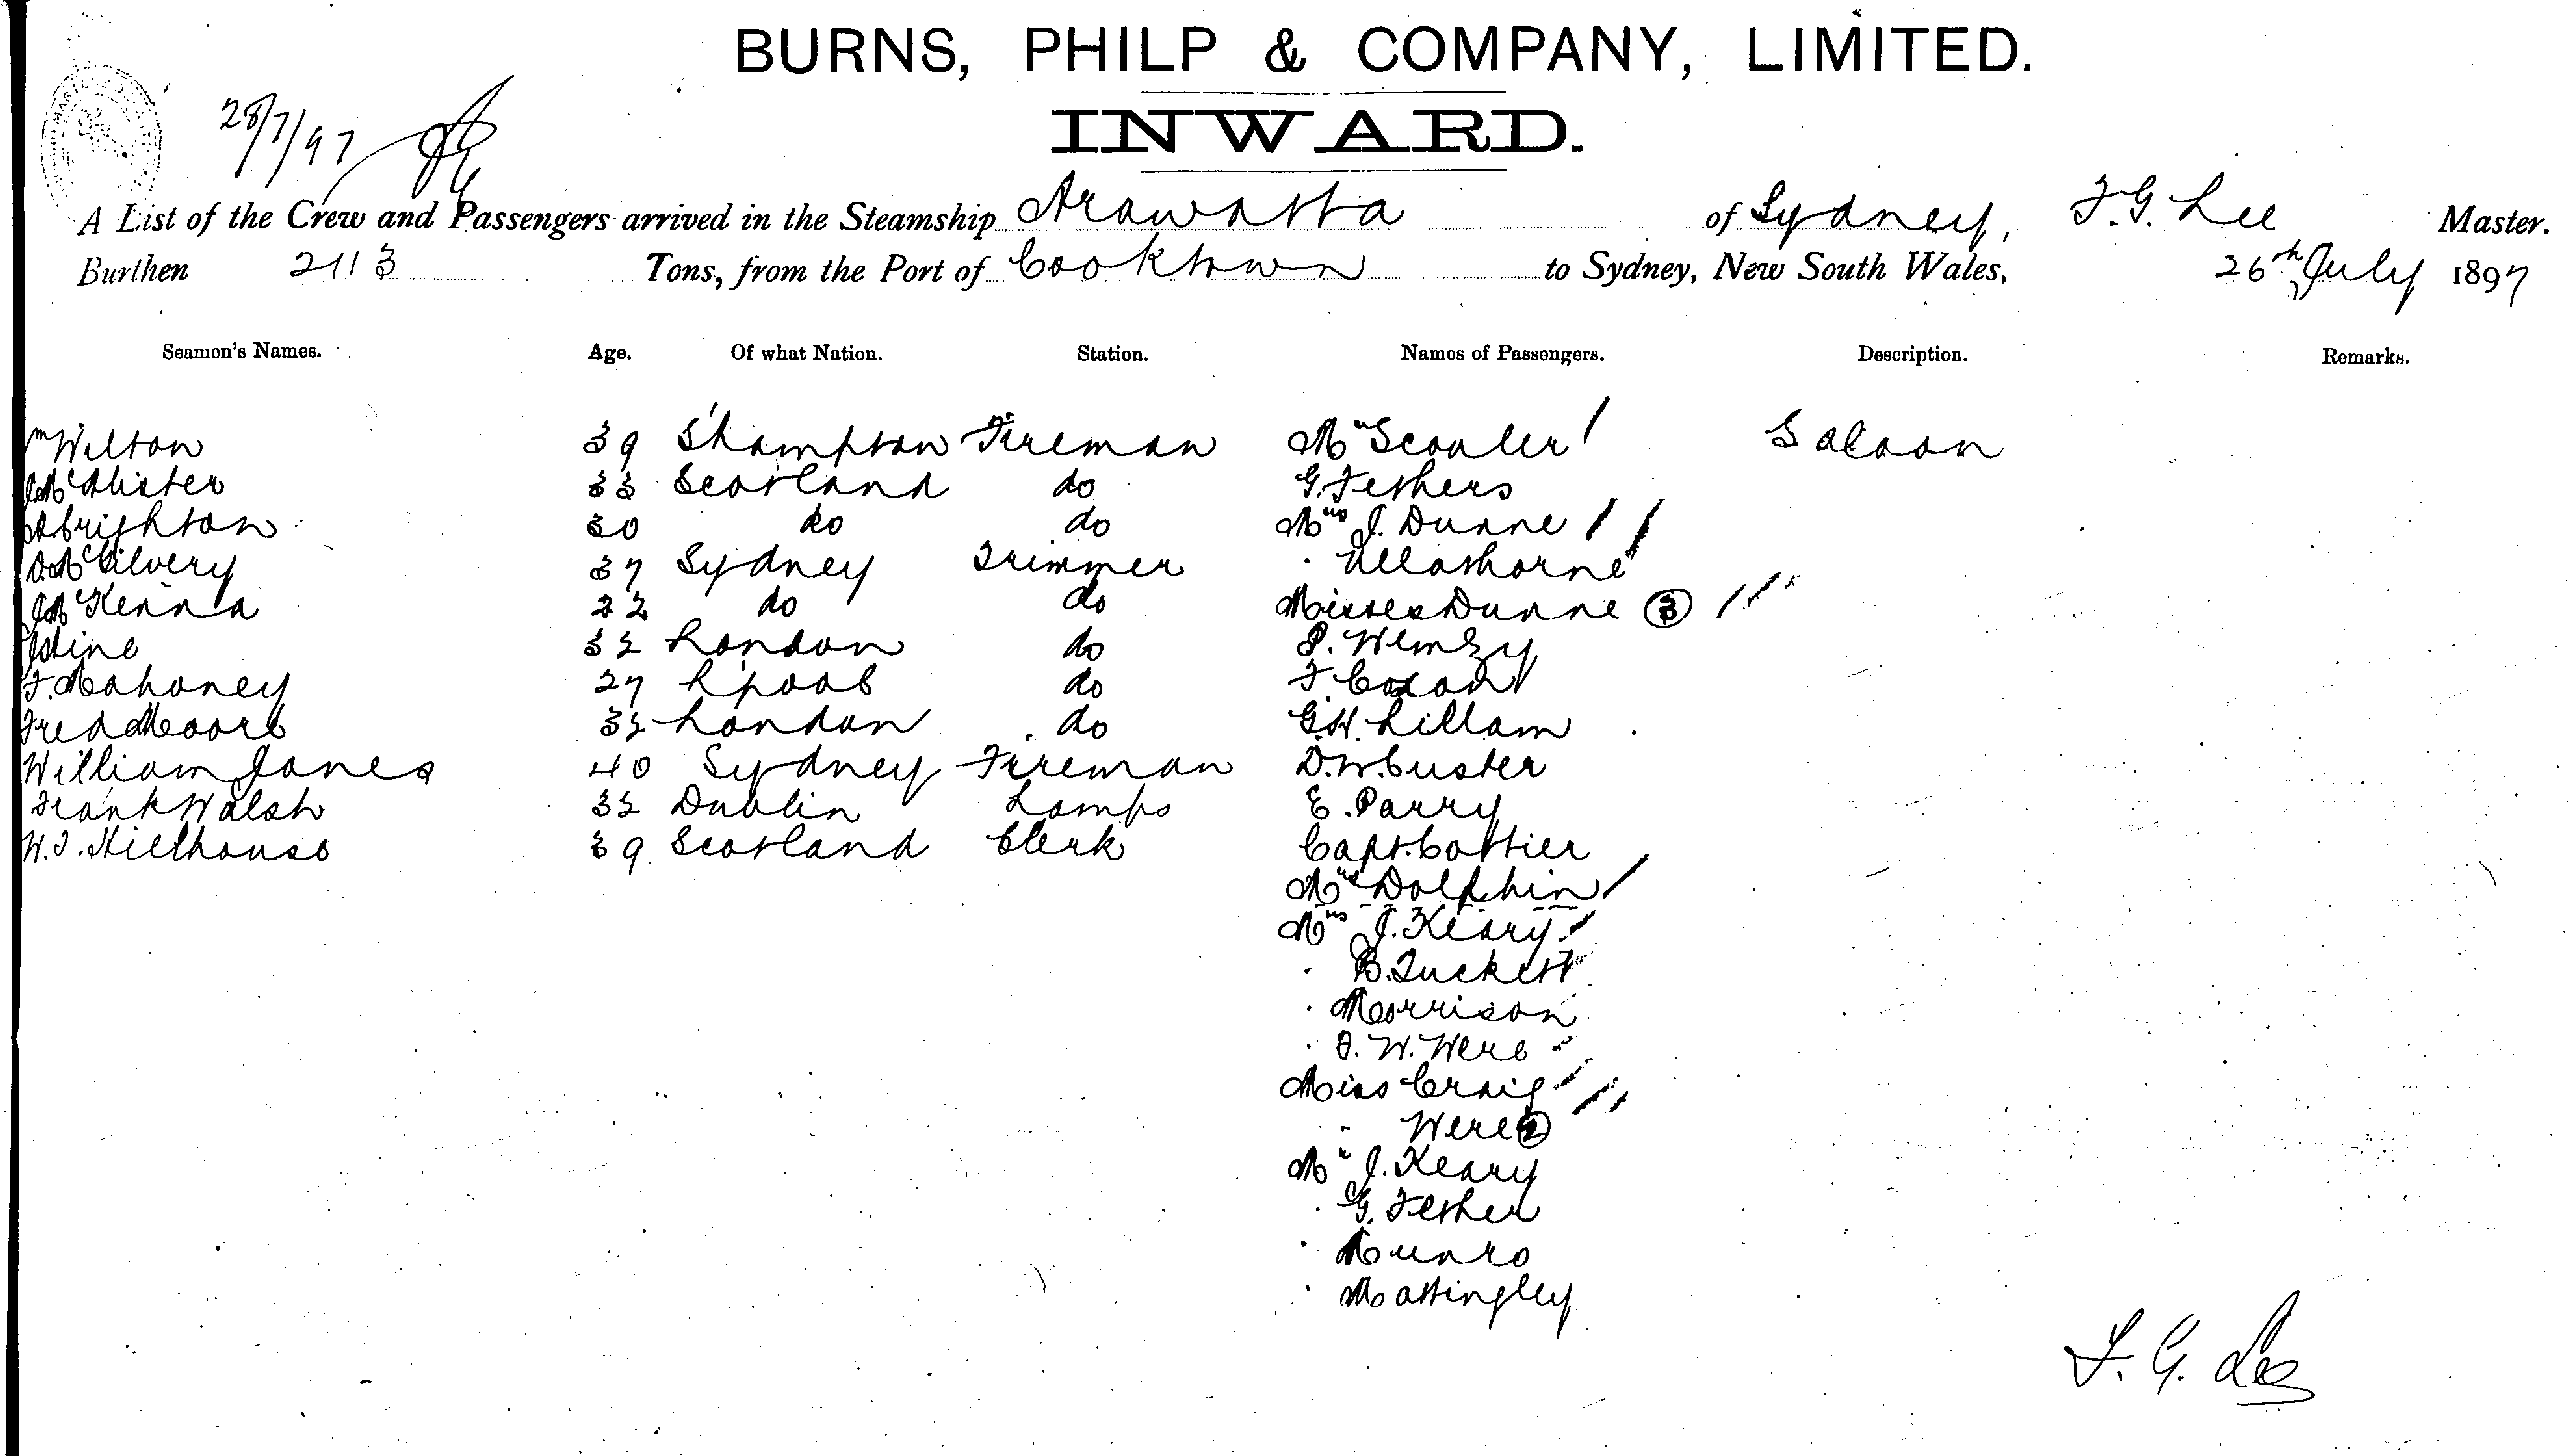 BURNS, PHILP & COMPANY, LIMITED.
INWARD.
28/7/97
A List of the Crew and Passengers arrived in the Steamship Arawatta of Sydney, F. G. Lee Master.
Burthen 2113 Tons, from the Port of Cooktown to Sydney, New South Wales, 26th July 1897
Seamen's Names. Age. Of what Nation. Station. Names of Passengers. Description. Remarks.
Wm Wilton 39 S'hampton Fireman Mrs Scouler Saloon
McAlister 33 Scotland do G. Fethers
Abrighton 30 do do Mrs J. Dunne
D. McGilvery 37 Sydney Trimmer " Ullathorne
McKenna 22 do do Misses Dunne (3)
Hine 32 London do P. Wemzy
F. Mahoney 27 L'pool do F. Coxon
Fred Moore 32 London do G.H. Lillam
William Jones 40 Sydney Fireman D.W. Custer
Frank Walsh 32 Dublin Lamps E. Parry
W.J. Hillhouse 39 Scotland Clerk Capt. Cottier
Mrs Dolphin
Mrs J. Keary
" B. Tuckett
" Morrison
" J. W. Were
Miss Craig
" Were (2)
Mr J. Keary
" G. Fether
" Munro
" Mattingley
F. G. Lee